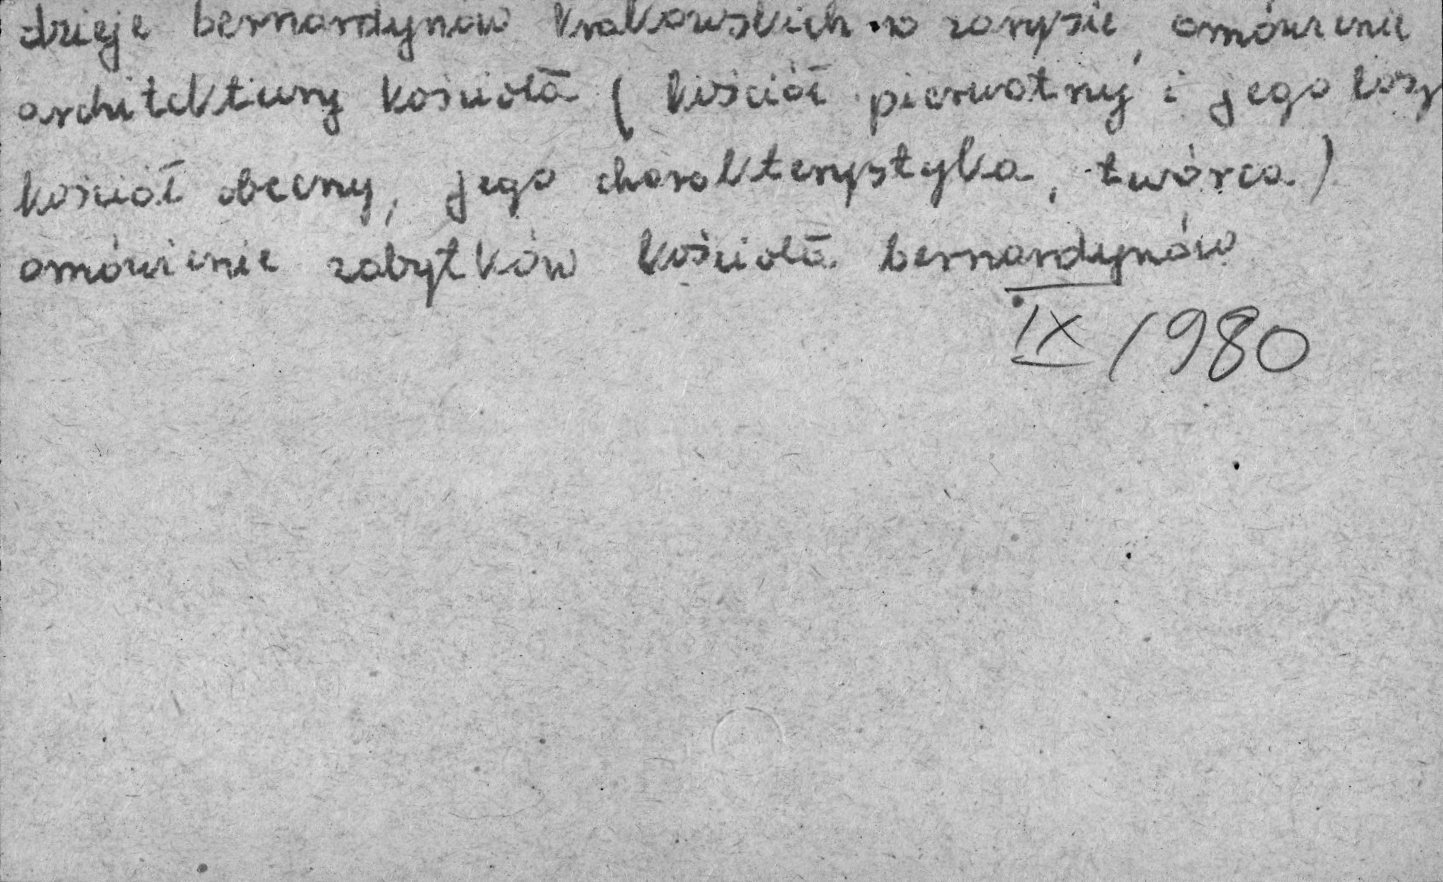 dzieje bernardynów krakowskich w zarysie, omówienie
architektury kościoła (kościół pierwotny i jego losy
kościół obecny, jego charakterystyka, twórca)
omówienie zabytków kościoła bernardynów
IX/1980